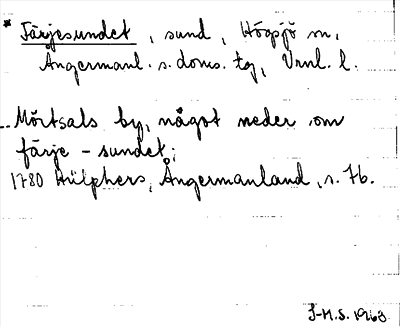 * Färjesundet, sund, Högsjö sn,
Ångermanl. s. doms. tg, Vrnl. l.
Mörtsals by, något neder om
färje - sundet;
1780 Hülphers, Ångermanland, s. 76.
J-M.S. 1963